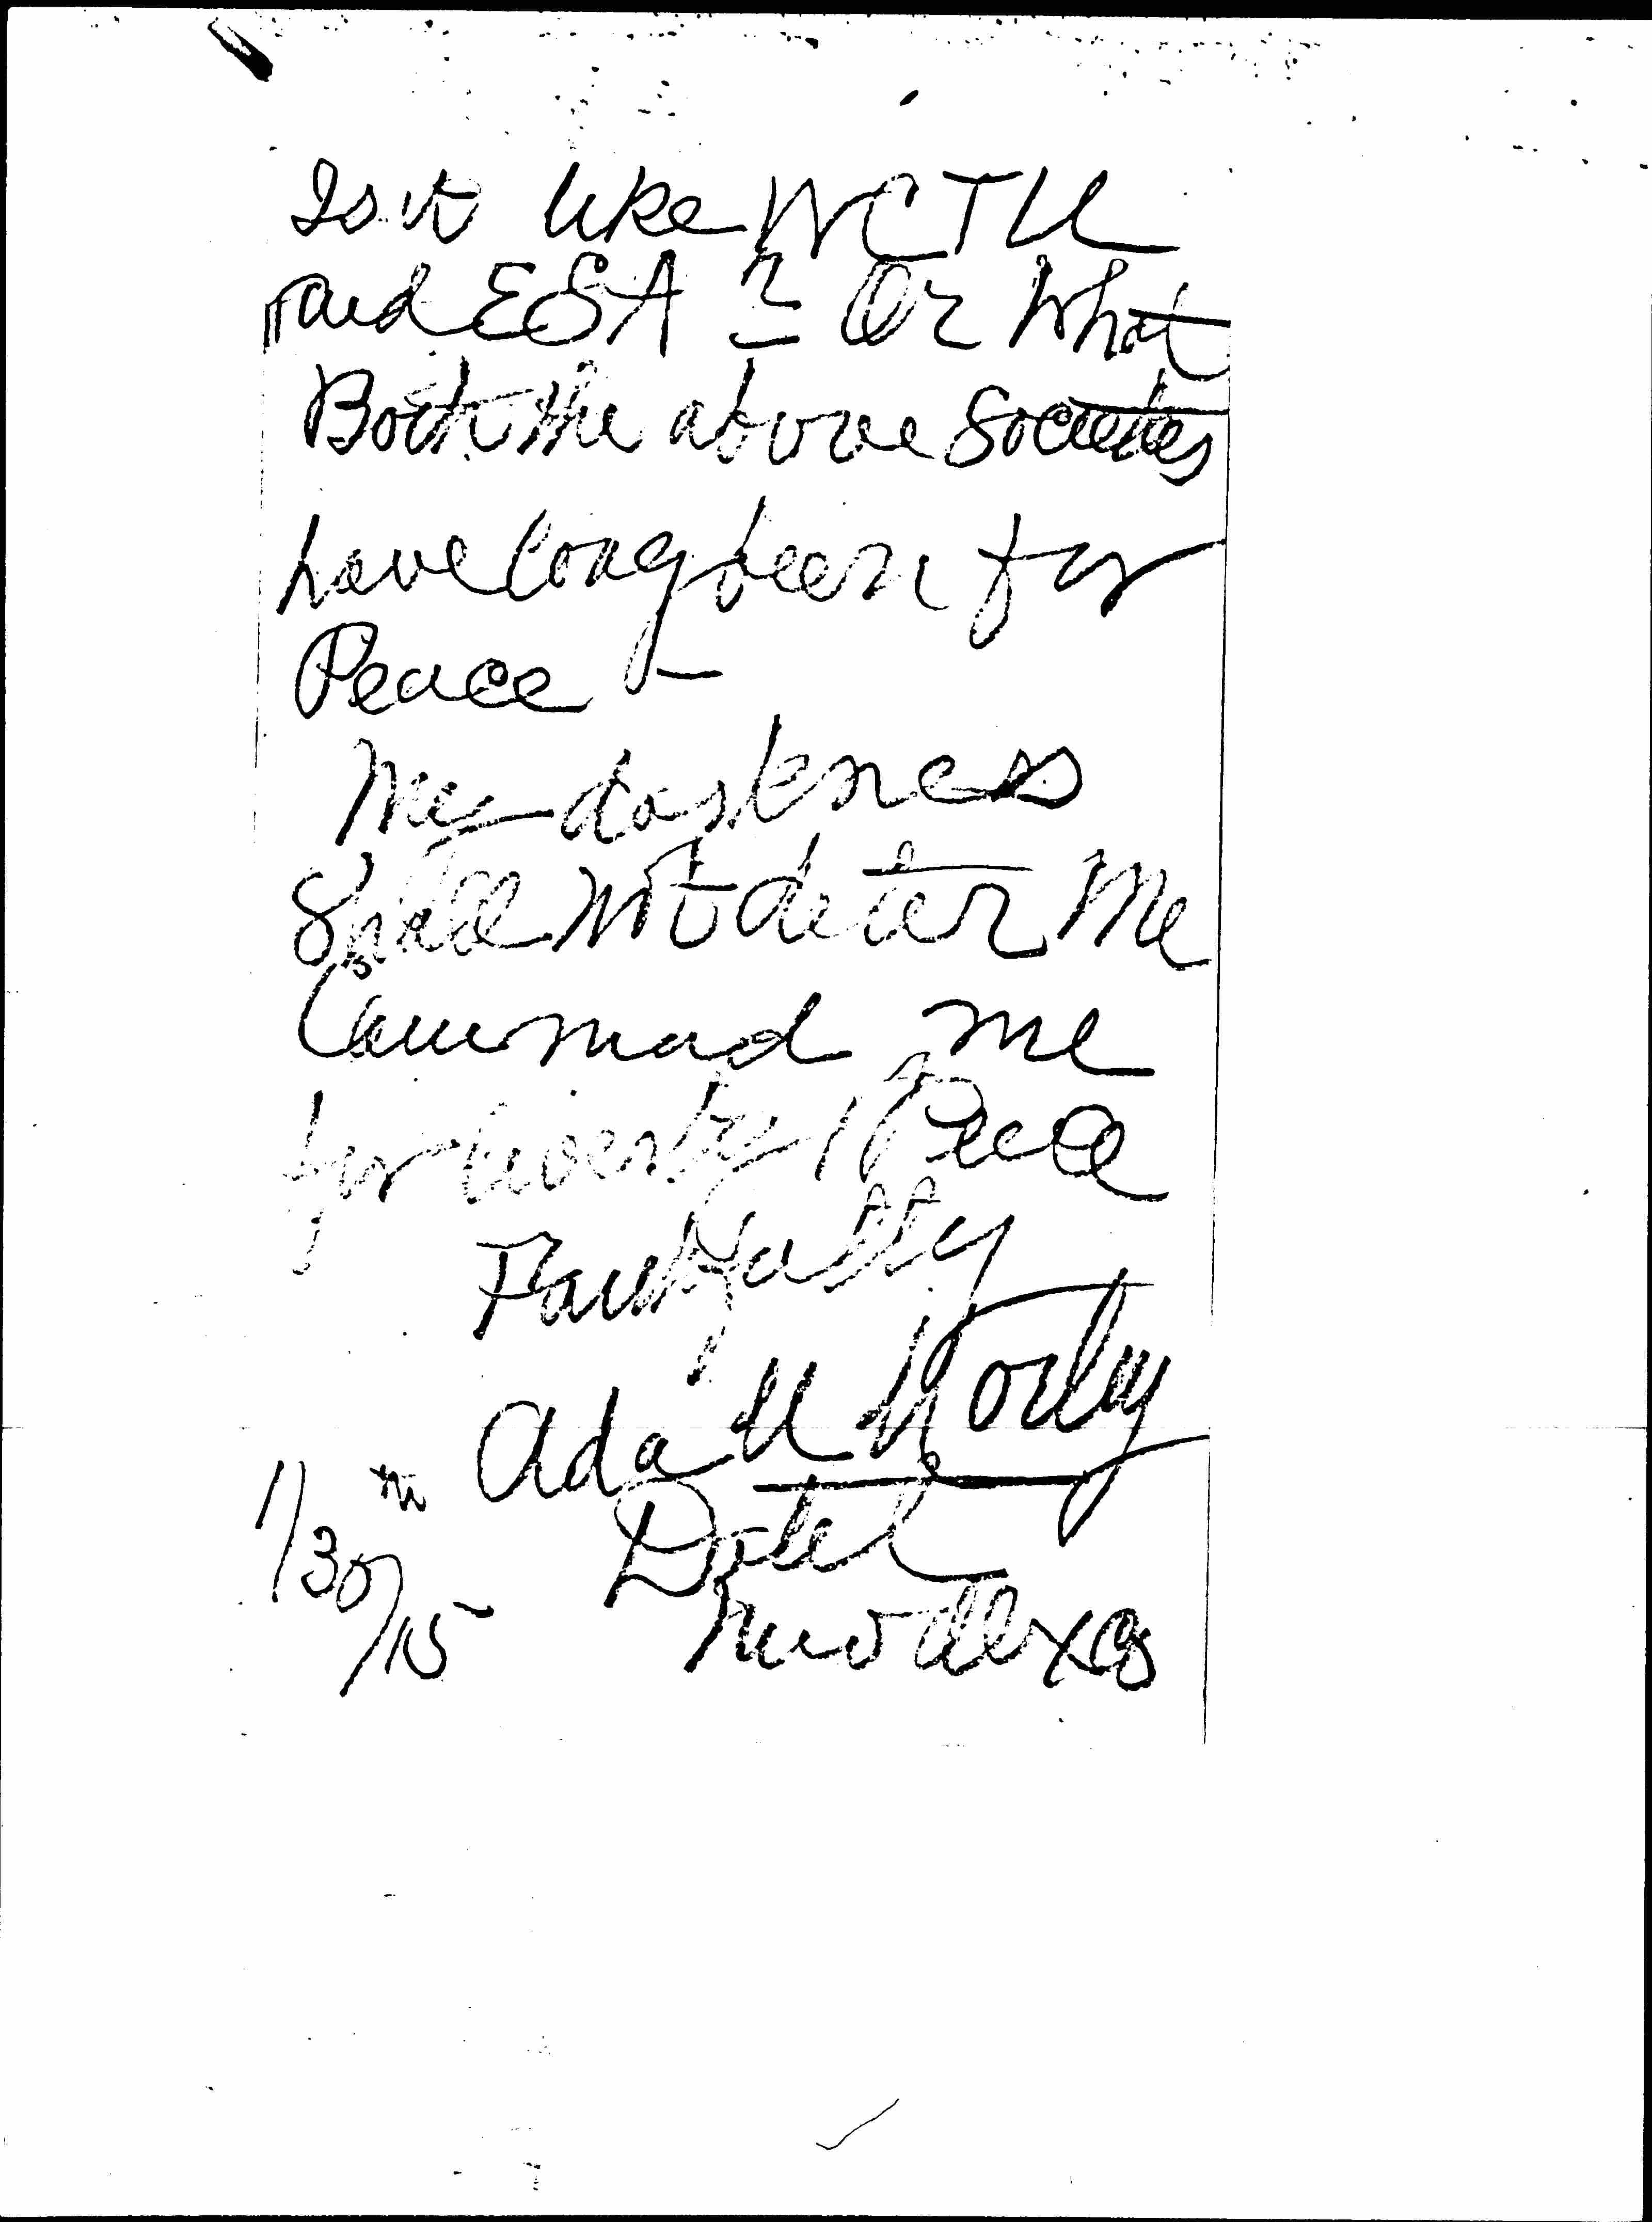 Is it like WCTU
and ESA ? Or What
Both the above Societies
have long been for
Peace -
My darkness
Shall not deter Me
Commad me
for liverty & Peace
Faithfully
Ada M
1/30th/15